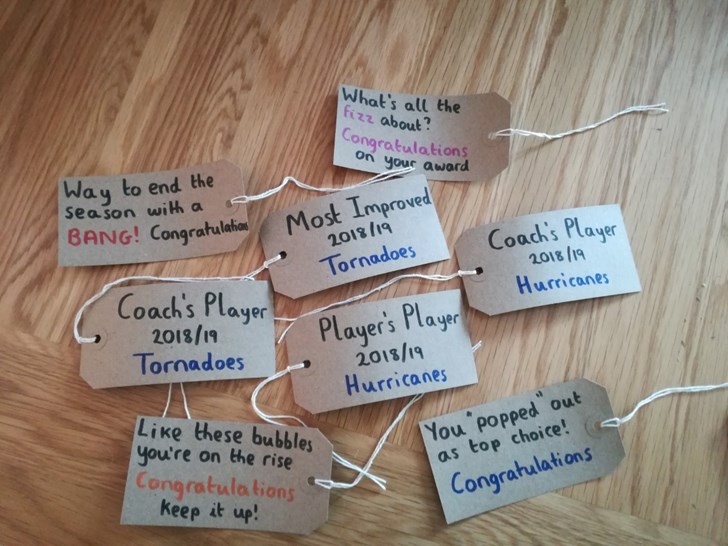 What's all the
Fizz about?
Congratulations
on your award
Way to end the
season with a
BANG! Congratulations
Most Improved
2018/19
Tornadoes
Coach's Player
2018/19
Hurricanes
Coach's Player
2018/19
Tornadoes
Player's Player
2018/19
Hurricanes
You "popped" out
as top choice!
Congratulations
Like these bubbles
you're on the rise
Congratulations
Keep it up!